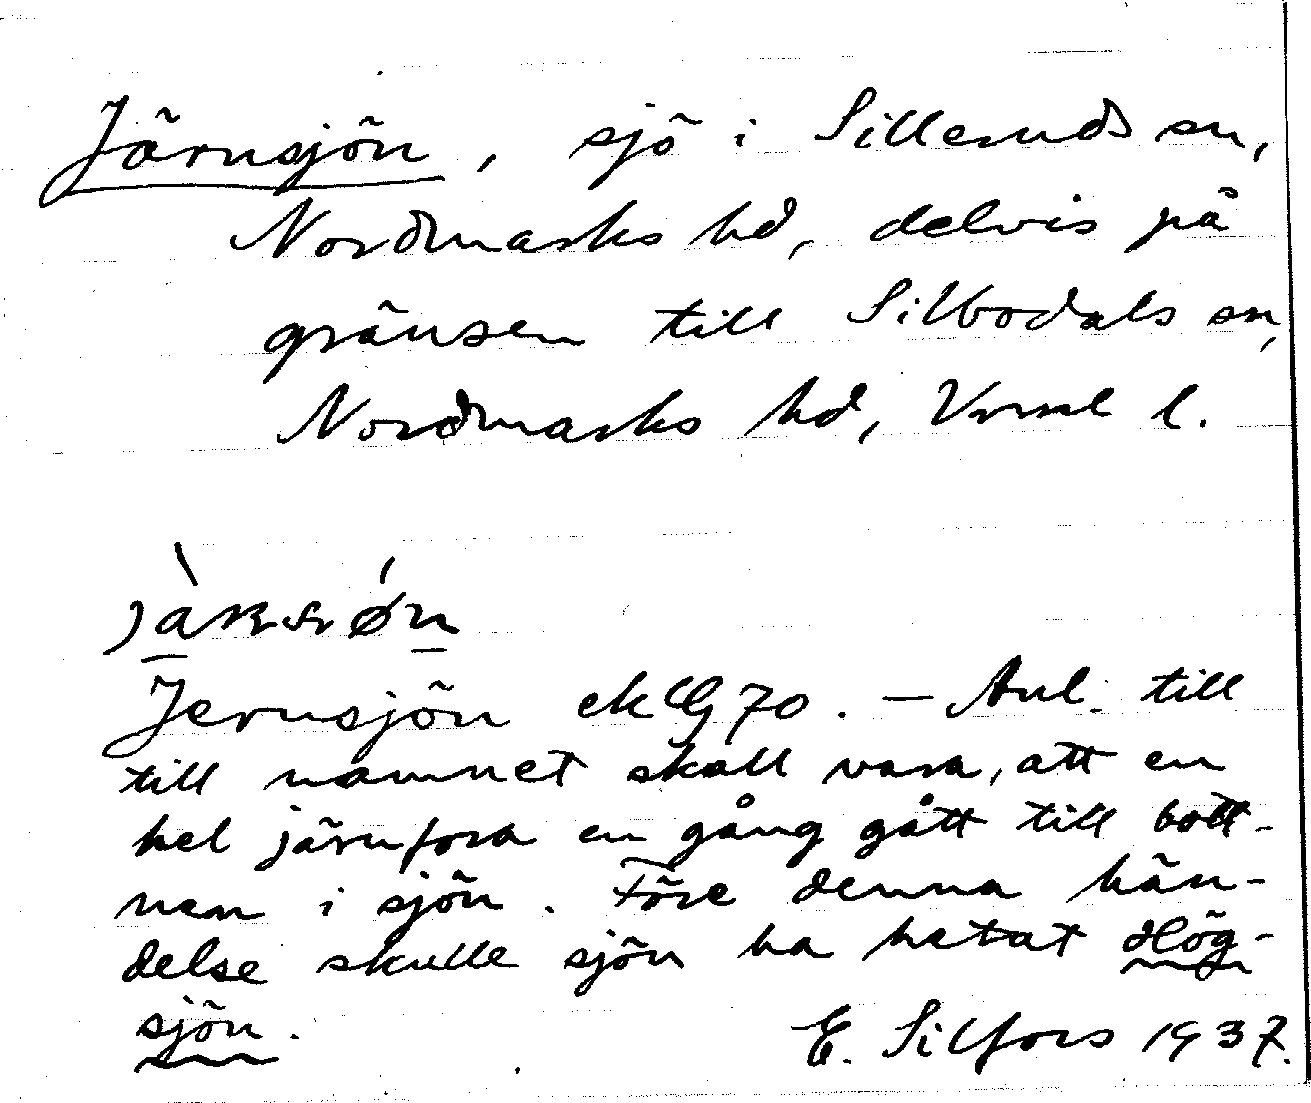 Järnsjön, sjö i Silleruds sn,
Nordmarks hd, delvis på
gränsen till Silbodals sn,
Nordmarks hd, Vrml l.
Jernsjön ekG 70. — Anl. till
till namnet skall vara, att en
hel järnfora en gång gått till bott-
nen i sjön. Före denna hän-
delse skulle sjön ha hetat Hög-
sjön.
E. Silfors 1937.